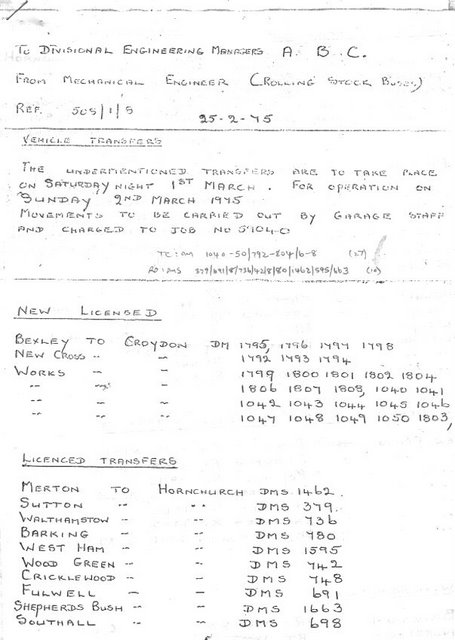 To Divisional Engineering Managers A. B. C.
From Mechanical Engineer (Rolling Stock Buses)
Ref. 505/1/5
25-2-75
Vehicle Transfers
The undermentioned transfers are to take place
on Saturday night 1st March. For operation on
Sunday 2nd March 1975
Movements to be carried out by garage staff
and charged to Job No 5904-0
1040-50/792-804/6-8 (27)
379/691/8/736/42/8/80/1462/595/663 (10)
New Licensed
Bexley to Croydon DM 1795, 1796 1797 1798
New Cross " " 1792 1793 1794
Works " " 1799 1800 1801 1802 1804
" " " 1806 1807 1808, 1040 1041
" " " 1042 1043 1044 1045 1046
" " " 1047 1048 1049 1050 1803,
Licenced Transfers
Merton to Hornchurch DMS 1462.
Sutton " " DMS 379.
Walthamstow " " DMS 736
Barking " " DMS 780
West Ham " " DMS 1595
Wood Green " " DMS 742
Cricklewood " " DMS 748
Fulwell " " DMS 691
Shepherds Bush " " DMS 1663
Southall " " DMS 698